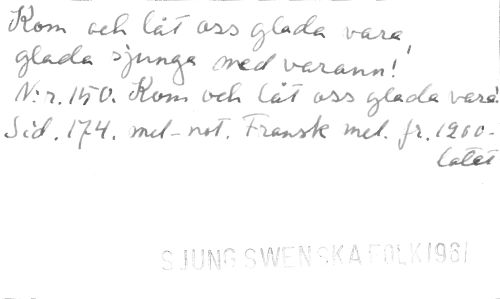 Kom och låt oss glada vara,
glada sjunga med varann!
N:r. 150. Kom och låt oss glada vara!
Sid. 174. mel-not. Fransk mel. fr. 1200-
talet
SJUNG SWENSKA FOLK 1961